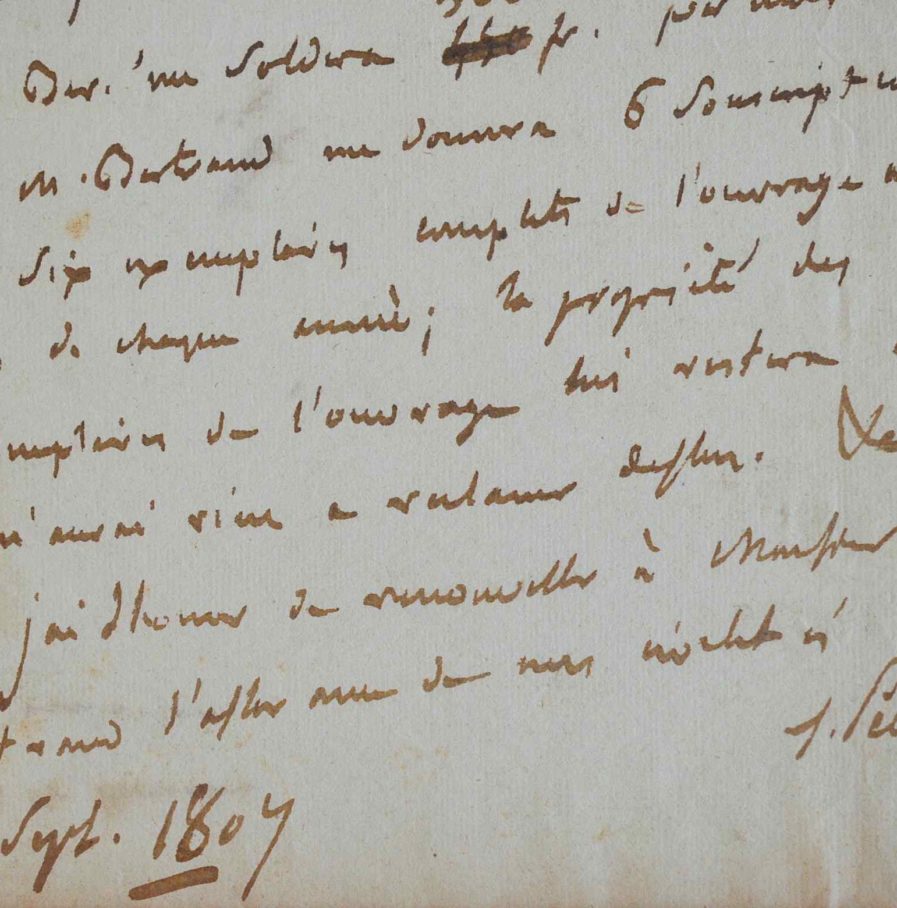 Ber. me soldera fr. par
M. Bertrand me donnera 6 Souscript
Six exemplaires complets de l'ouvrage
de chaque année; la propriété des
mplaires de l'ouvrage lui restera
n'aurai rien a reclamer dessus.
j'ai d'honneur de renouveller à Monsieur
trand l'assurance de mes civilités
Sept. 1807